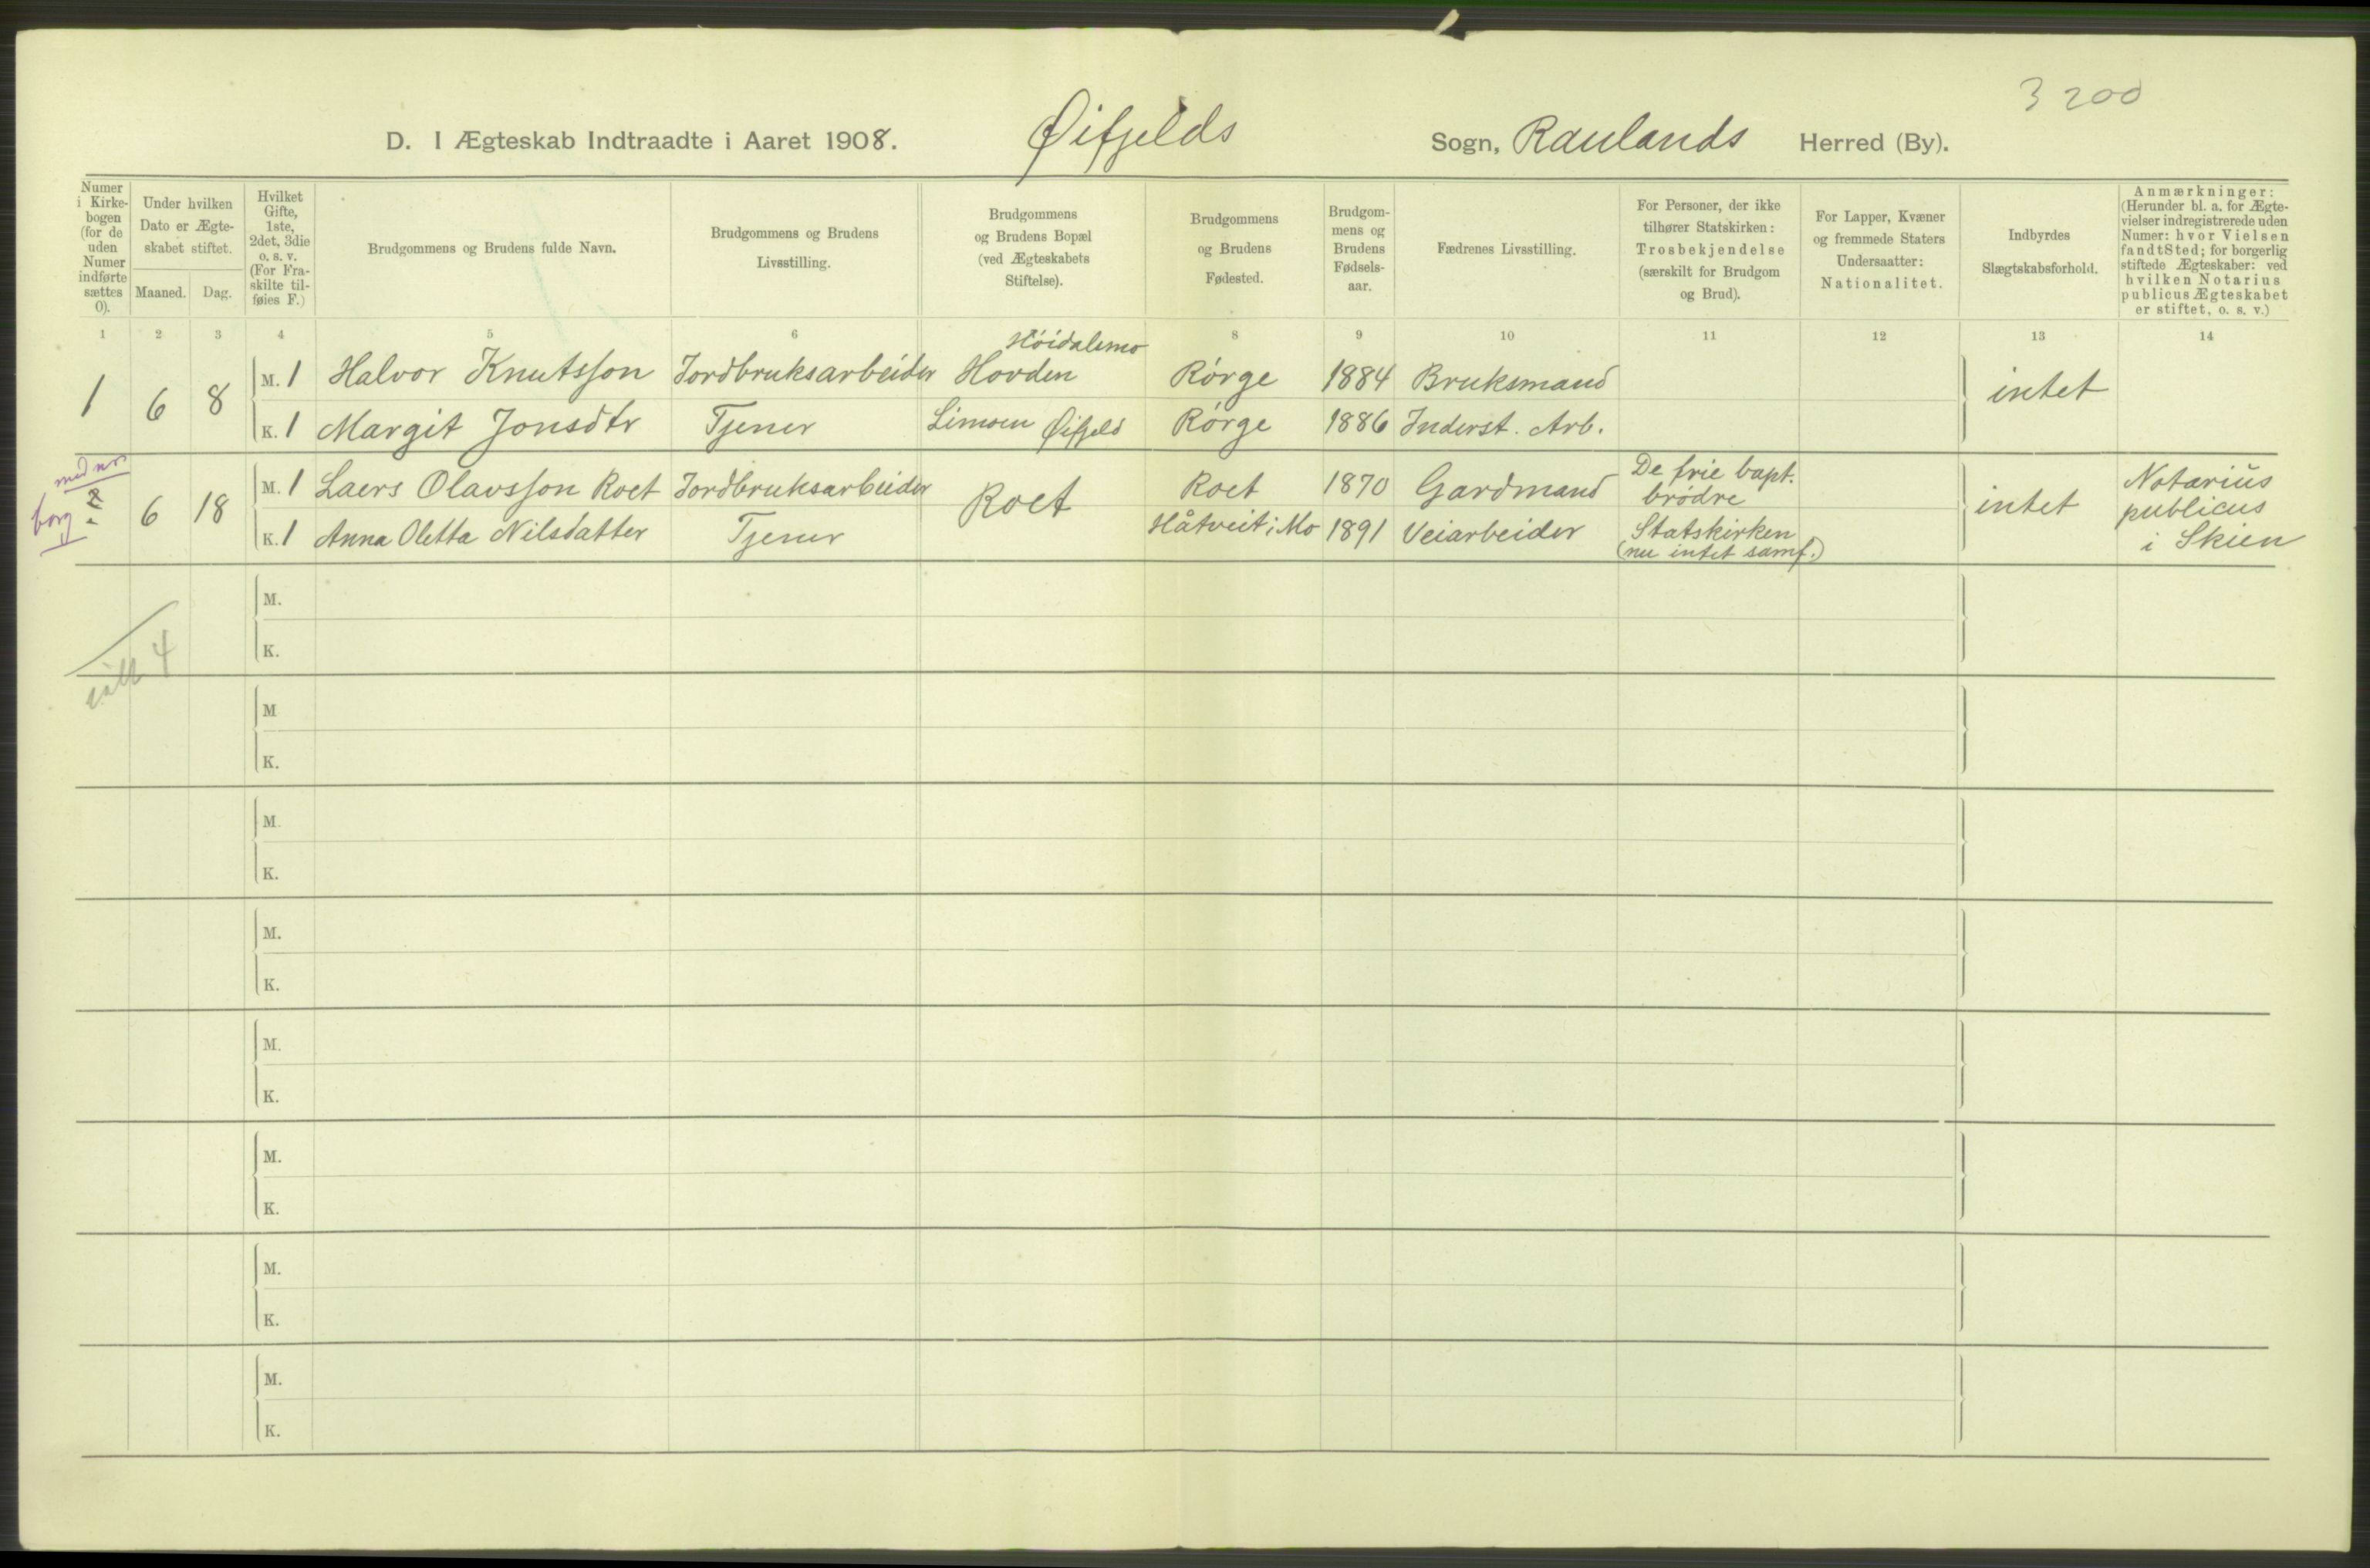 3 200
D. I Ægteskab Indtraadte i Aaret 1908. Øifjelds Sogn, Raulands Herred (By).
Numer i Kirke-bogen (for de uden Numer indførte sættes 0).
Under hvilken Dato er Ægte-skabet stiftet.
Maaned. Dag.
Hvilket Gifte, 1ste, 2det, 3die o. s. v. (For Fra-skilte til-føies F.)
Brudgommens og Brudens fulde Navn.
Brudgommens og Brudens Livsstilling.
Brudgommens og Brudens Bopæl (ved Ægteskabets Stiftelse).
Brudgommens og Brudens Fødested.
Brudgom-mens og Brudens Fødsels-aar.
Fædrenes Livsstilling.
For Personer, der ikke tilhører Statskirken: Trosbekjendelse (særskilt for Brudgom og Brud).
For Lapper, Kvæner og fremmede Staters Undersaatter: Nationalitet.
Indbyrdes Slægtskabsforhold.
Anmærkninger: (Herunder bl. a. for Ægte-vielser indregistrerede uden Numer: hvor Vielsen fandt Sted; for borgerlig stiftede Ægteskaber: ved hvilken Notarius publicus Ægteskabet er stiftet, o. s. v.)
1 2 3 4 5 6 7 8 9 10 11 12 13 14
Høidalsmo
1 6 8 M. 1 Halvor Knutsson Jordbruksarbeider Hovden Rørge 1884 Bruksmand intet
K. 1 Margit Jonsdtr Tjener Limoen Øifjeld Rørge 1886 Inderst. Arb.
med nr.
2 6 18 M. 1 Laers Olavsson Roet Jordbruksarbeider Roet Roet 1870 Gardmand De frie bapt. brødre intet Notarius publicus i Skien
borg
K. 1 Anna Oletta Nilsdatter Tjener Håtveit i Mo 1891 Veiarbeider Statskirken (nu intet samf.)
M.
K.
ialt 4
M
K.
M.
K.
M.
K.
M.
K.
M.
K.
M.
K.
M.
K.